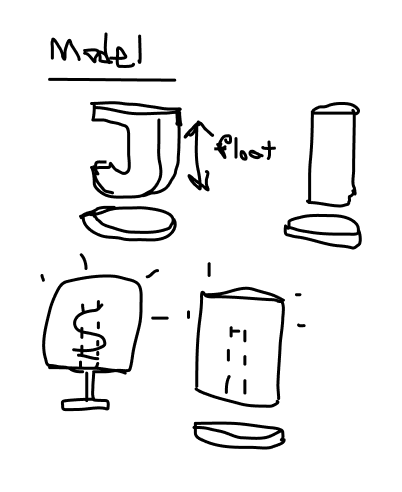 Model
J
float